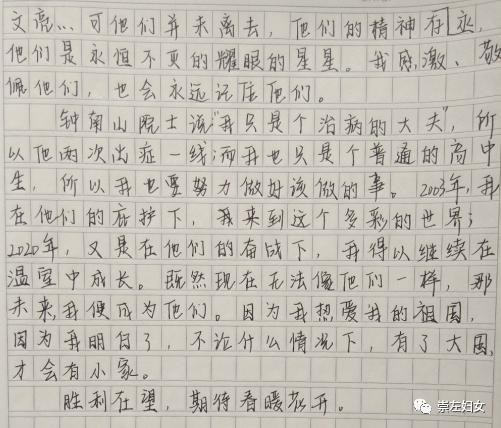 文亮… 可他们并未离去，他们的精神存永，
他们是永恒不灭的耀眼的星星。我感激、敬
佩他们，也会永远记住他们。
钟南山院士说“我只是个治病的大夫”，所
以他两次出症一线；而我也只是个普通的高中
生，所以我也要努力做好该做的事。2003年，我
在他们的庇护下，我来到这个多彩的世界；
2020年，又是在他们的奋战下，我得以继续在
温室中成长。既然现在无法像他们一样，那
未来我便成为他们。因为我想爱我的祖国，
因为我明白了，不论什么情况下，有了大国，
才会有小家。
胜利在望，期待春暖花开。
崇左妇女